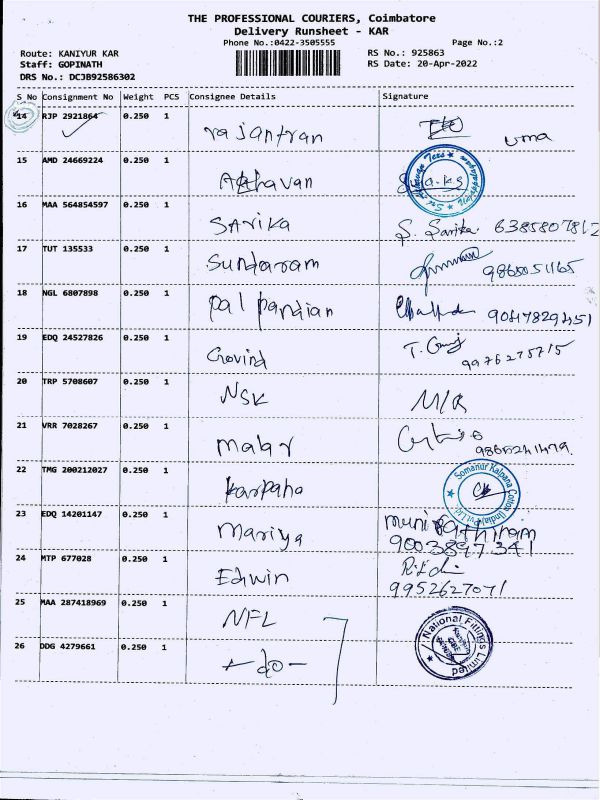 THE PROFESSIONAL COURIERS, Coimbatore
Delivery Runsheet - KAR
Phone No.:0422-3505555 Page No.:2
Route: KANIYUR KAR RS No.: 925863
Staff: GOPINATH RS Date: 20-Apr-2022
DRS No.: DCJB92586302
S No Consignment No Weight PCS Consignee Details Signature
14 RJP 2921864 0.250 1 rajantran uma
15 AMD 24669224 0.250 1 Adhavan
16 MAA 564854597 0.250 1 SARika S. Sarika 6385807812
17 TUT 135533 0.250 1 Sundaram 9865051165
18 NGL 6807898 0.250 1 pal pandian
19 EDQ 24527826 0.250 1 Govind 9976275715
20 TRP 5708607 0.250 1 NSK M/R
21 VRR 7028267 0.250 1
22 TMG 200212027 0.250 1 Somanur Kalpana Cotton (India) Pvt.Ltd.
23 EDQ 14201147 0.250 1 Mariya muni Rathinam
9003897341
24 MTP 677028 0.250 1 Edwin
9952627071
25 MAA 287418969 0.250 1 NFL National Fittings Limited
26 DDG 4279661 0.250 1 -do-